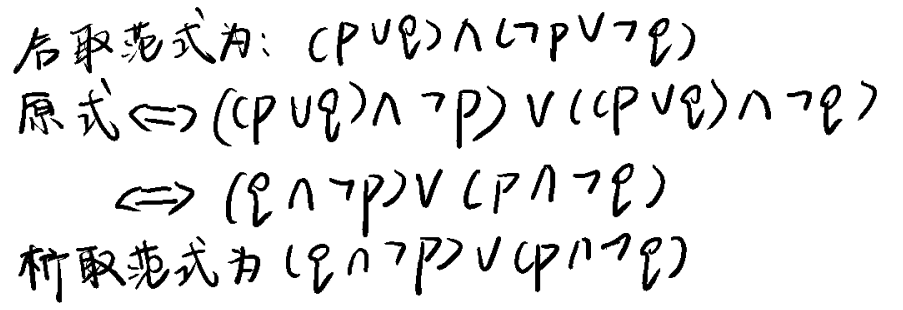 合取范式为: (p∨q)∧(¬p∨¬q)
原式⇔((p∨q)∧¬p)∨((p∨q)∧¬q)
⇔(q∧¬p)∨(p∧¬q)
析取范式为(q∧¬p)∨(p∧¬q)